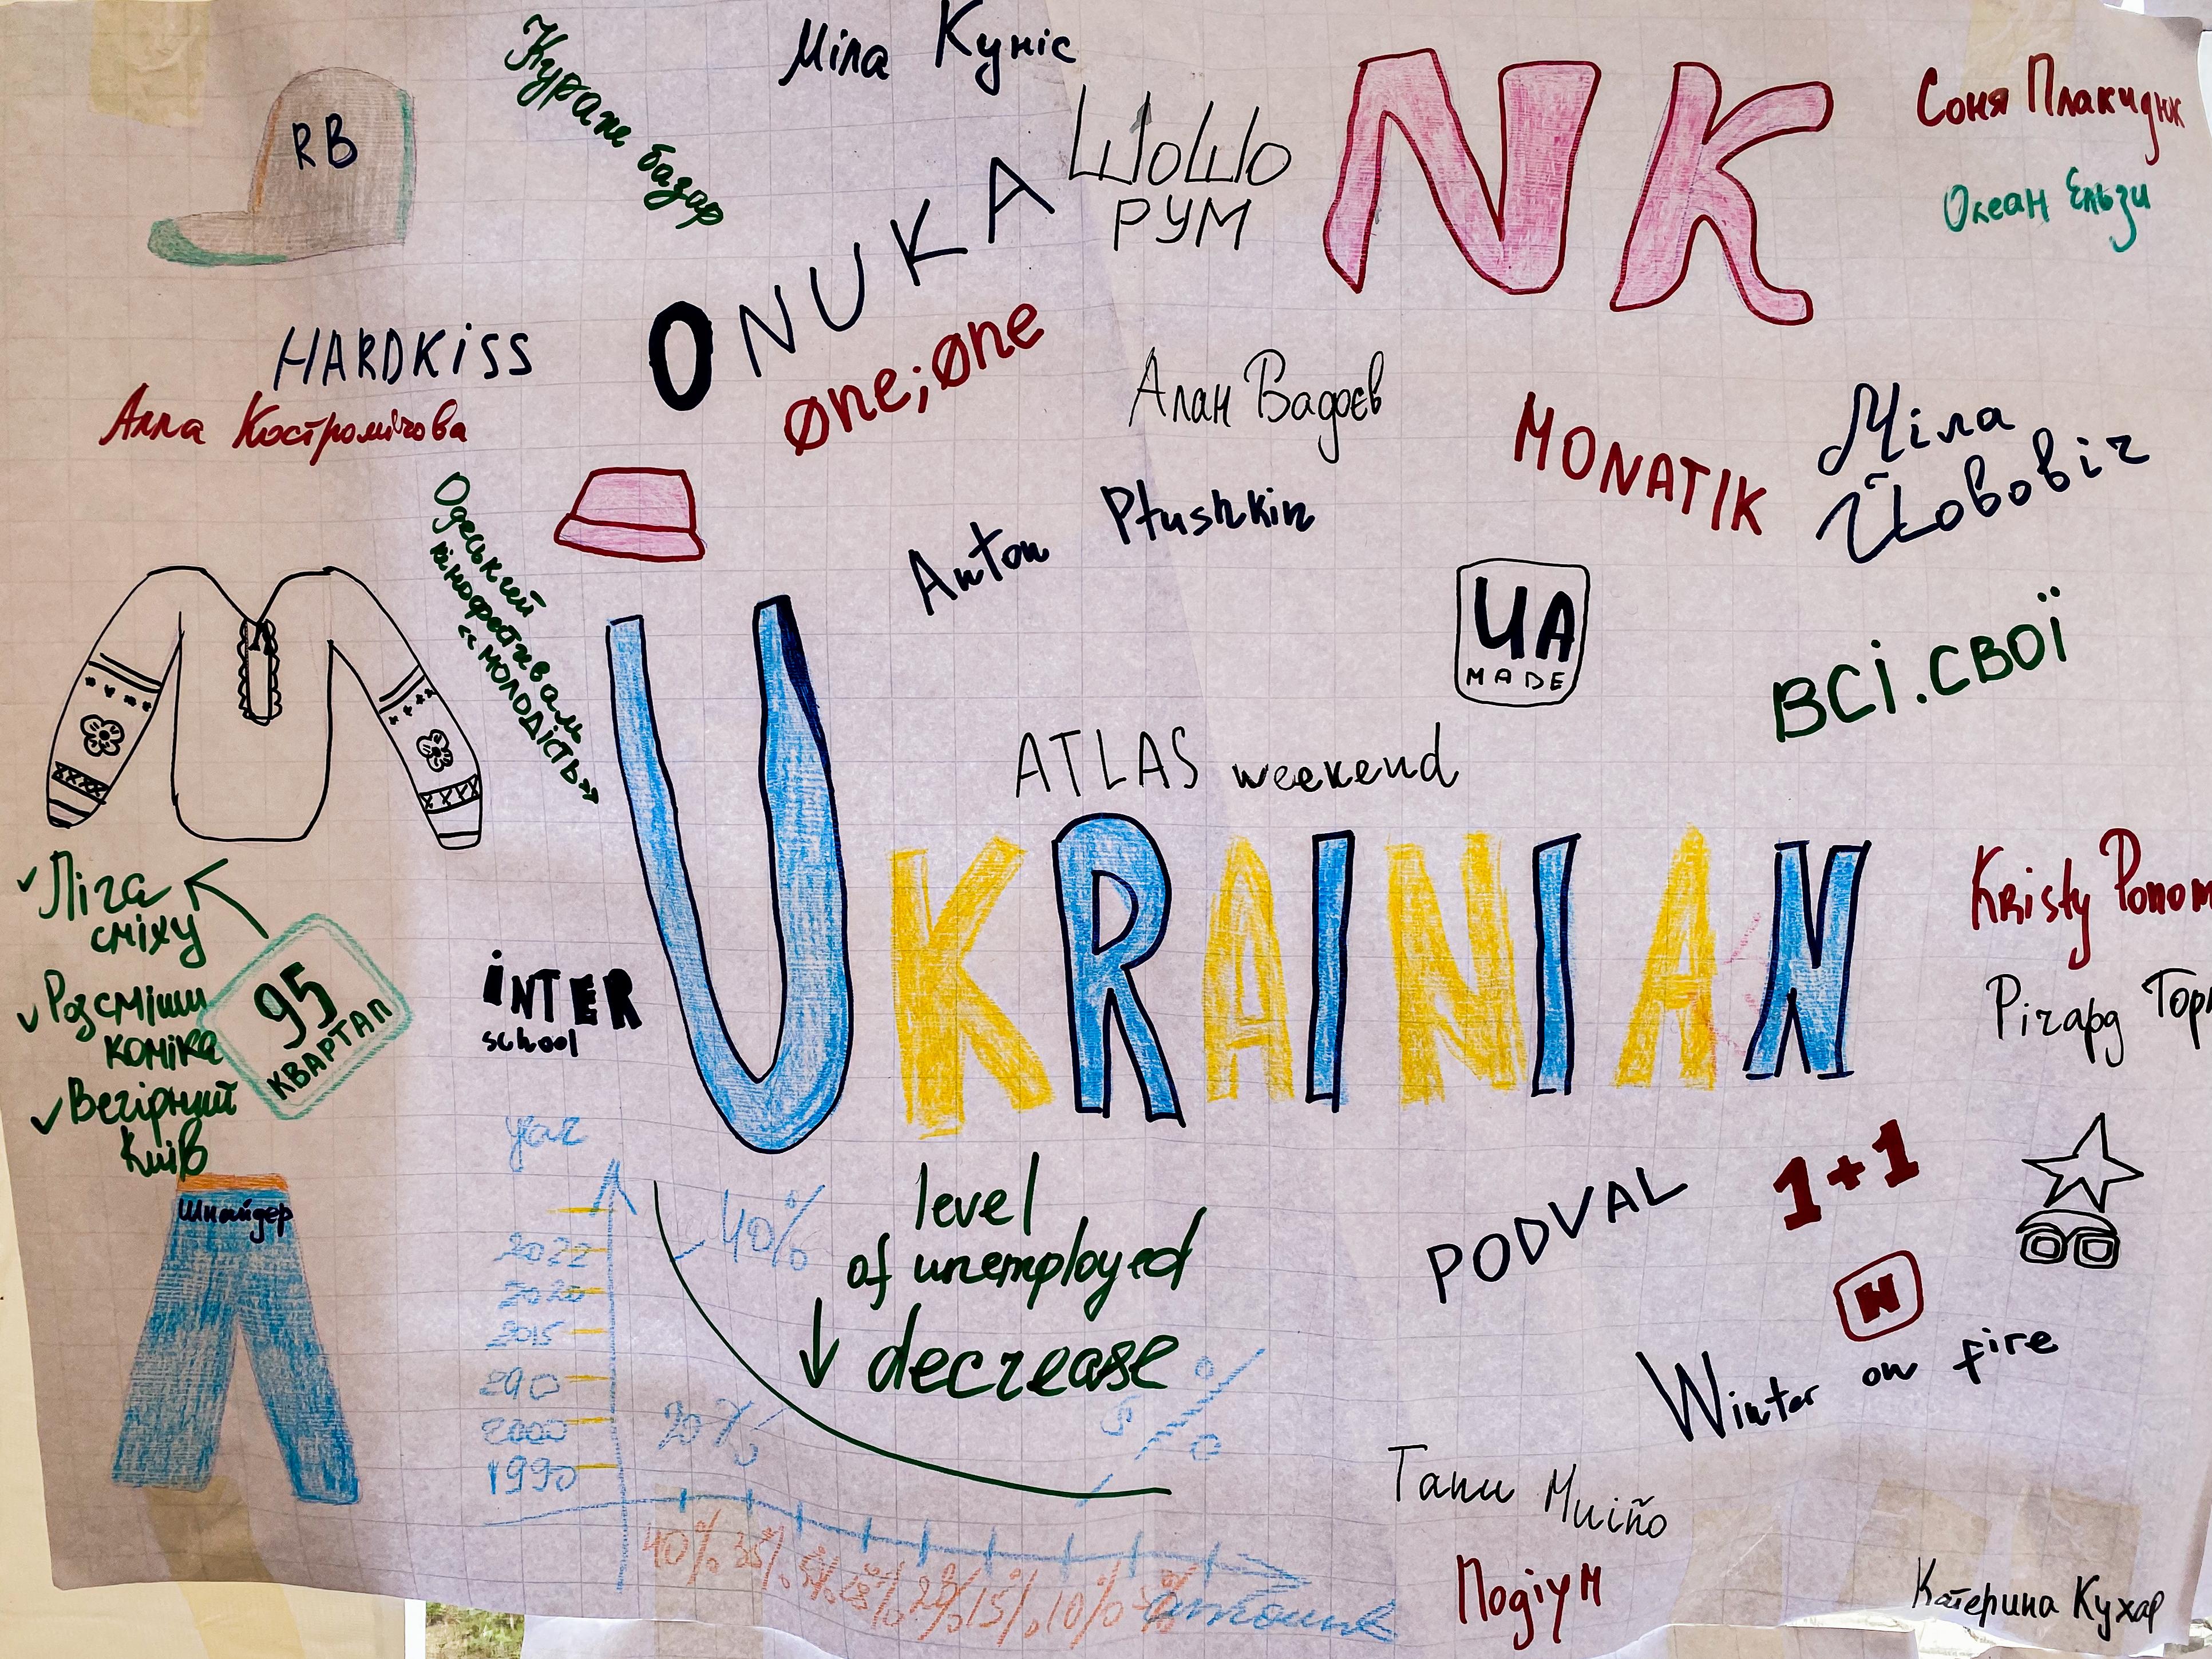 Кураж базар
Міла Куніс
RB
ШОШО
РУМ
NK
Соня Плакидюк
Океан Ельзи
ONUKA
HARDKISS
øne;øne
Алла Костромічова
Алан Бадоєв
MONATIK
Міла
Йовович
Anton Ptushkin
Одеський
кінофестиваль
«молодість»
UA
MADE
ВСІ.СВОЇ
ATLAS weekend
UKRAINIAN
Ліга
сміху
95
КВАРТАЛ
Розсміши
коміка
Вечірній
Київ
iNTER
school
Kristy Ponom
Річард Гор
Шнайдер
year
2022
2020
2015
2000
1990
40%
20%
5%
level
of unemployed
decrease
40% 35% 20% 15% 10%
PODVAL
1+1
N
Winter on fire
Тану Muiño
Подіум
Катерина Кухар